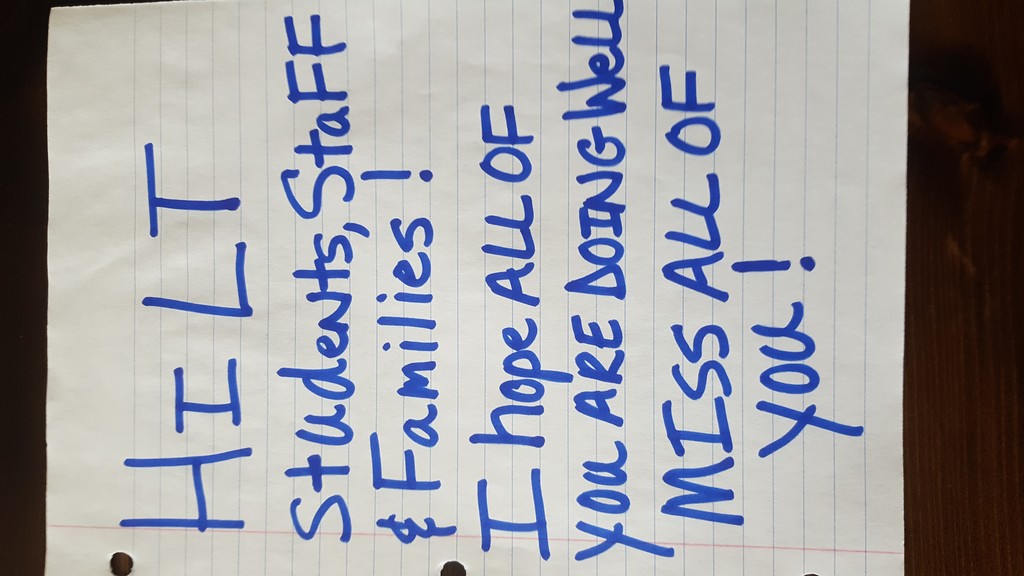 HILT
Students, Staff
& Families!
I hope ALL OF
you ARE DOING Well
MISS ALL OF
you!